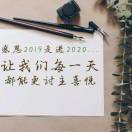 感恩2019走进2020...
让我们每一天
都能更讨主喜悦